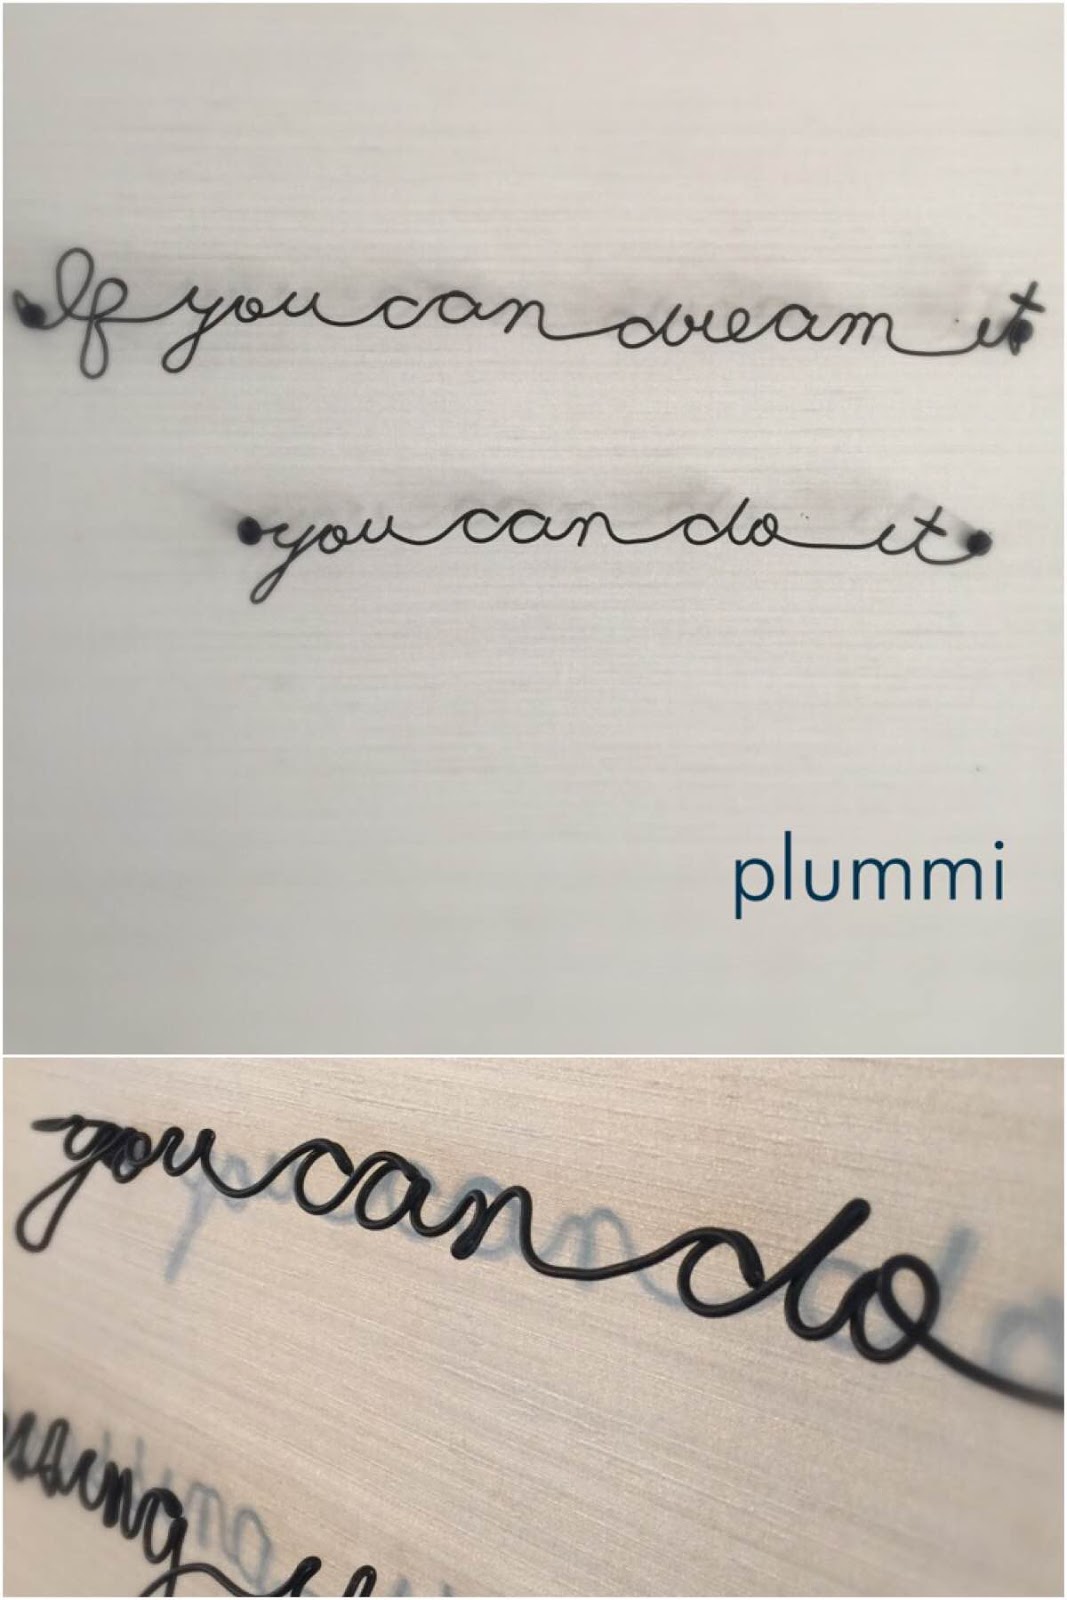 If you can dream it
you can do it
plummi
you can do